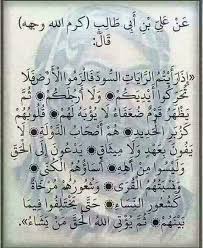 عَنْ عَلِيِّ بْنِ أَبِي طَالِبٍ (كرم الله وجهه)
قَالَ:
«إِذَا رَأَيْتُمُ الرَّايَاتِ السُّودَ فَالْزَمُوا الْأَرْضَ فَلَا
تُحَرِّكُوا أَيْدِيَكُمْ وَلَا أَرْجُلَكُمْ ثُمَّ
يَظْهَرُ قَوْمٌ ضُعَفَاءُ لَا يُؤْبَهُ لَهُمْ قُلُوبُهُمْ
كَزُبَرِ الْحَدِيدِ هُمْ أَصْحَابُ الدَّوْلَةِ لَا
يَفُونَ بِعَهْدٍ وَلَا مِيثَاقٍ يَدْعُونَ إِلَى الْحَقِّ
وَلَيْسُوا مِنْ أَهْلِهِ أَسْمَاؤُهُمُ الْكُنَى
وَنِسْبَتُهُمُ الْقُرَى وَشُعُورُهُمْ مُرْخَاةٌ
كَشُعُورِ النِّسَاءِ حَتَّى يَخْتَلِفُوا فِيمَا
بَيْنَهُمْ ثُمَّ يُؤْتِي اللَّهُ الْحَقَّ مَنْ يَشَاءُ».